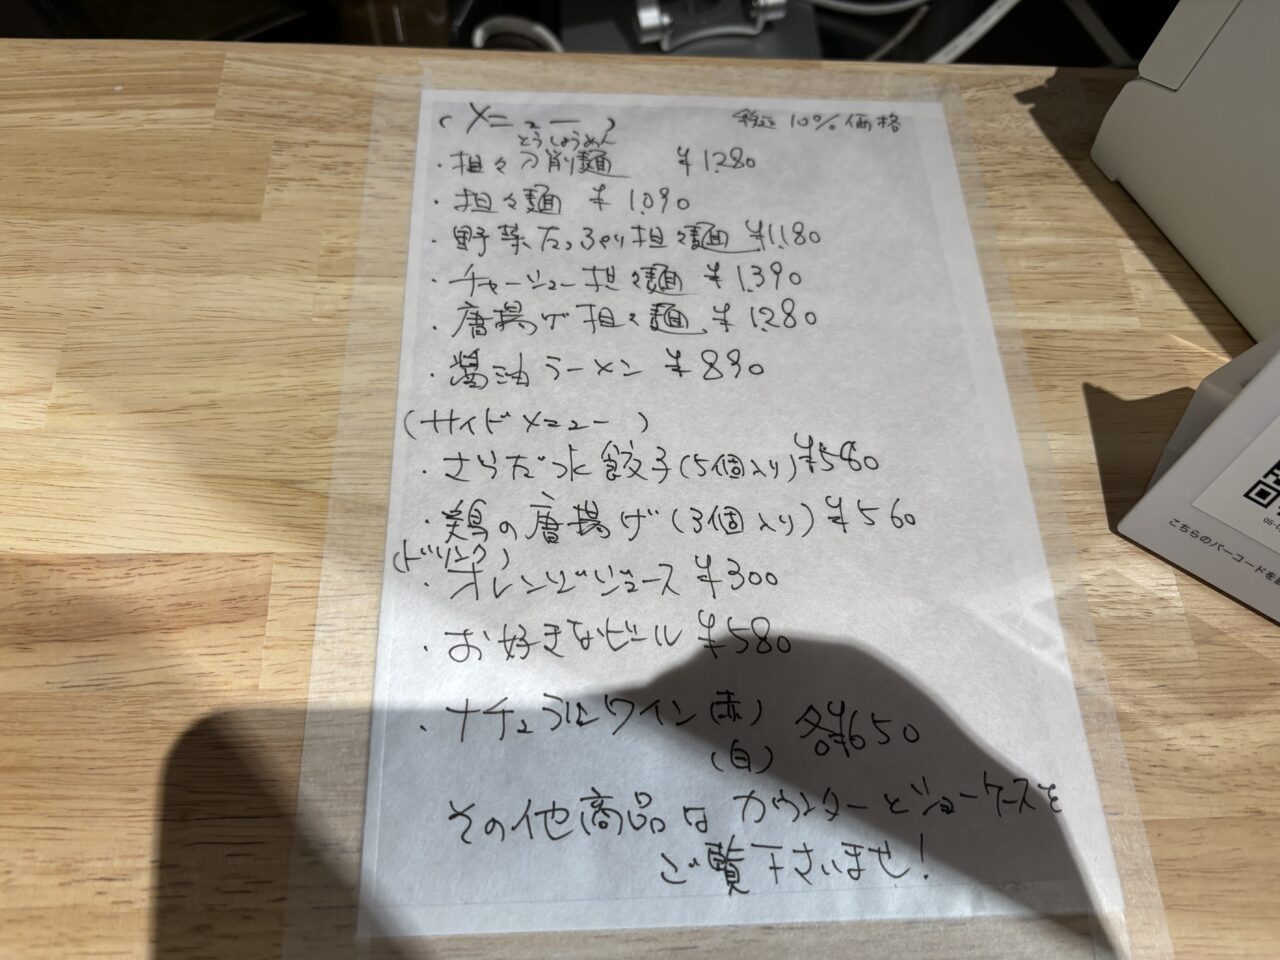 (メニュー)
税込10%価格
とうしょうめん
・担々刀削麺 ¥1,280
・担々麺 ¥1,090
・野菜たっぷり担々麺 ¥1,180
・チャーシュー担々麺 ¥1,390
・唐揚げ担々麺 ¥1,280
・醤油ラーメン ¥890
(サイドメニュー)
・さらだ水餃子(5個入り)¥580
・鶏の唐揚げ(3個入り)¥560
(ドリンク)
・オレンジジュース ¥300
・お好きなビール ¥580
・ナチュラルワイン(赤) 各¥650
(白)
その他商品はカウンターとショーケースを
ご覧下さいませ!
こちらのバーコードを